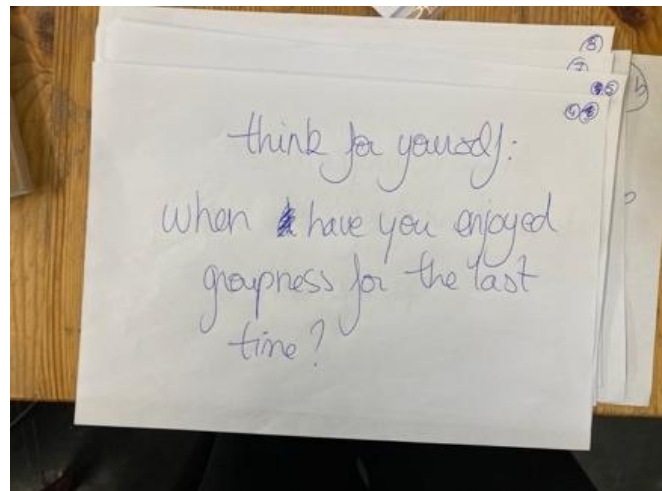 8
7
5
think for yourself:
when have you enjoyed
groupness for the last
time?